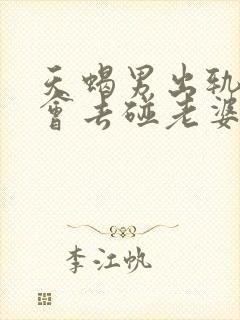 天蝎男出轨
會去碰老婆
李江帆